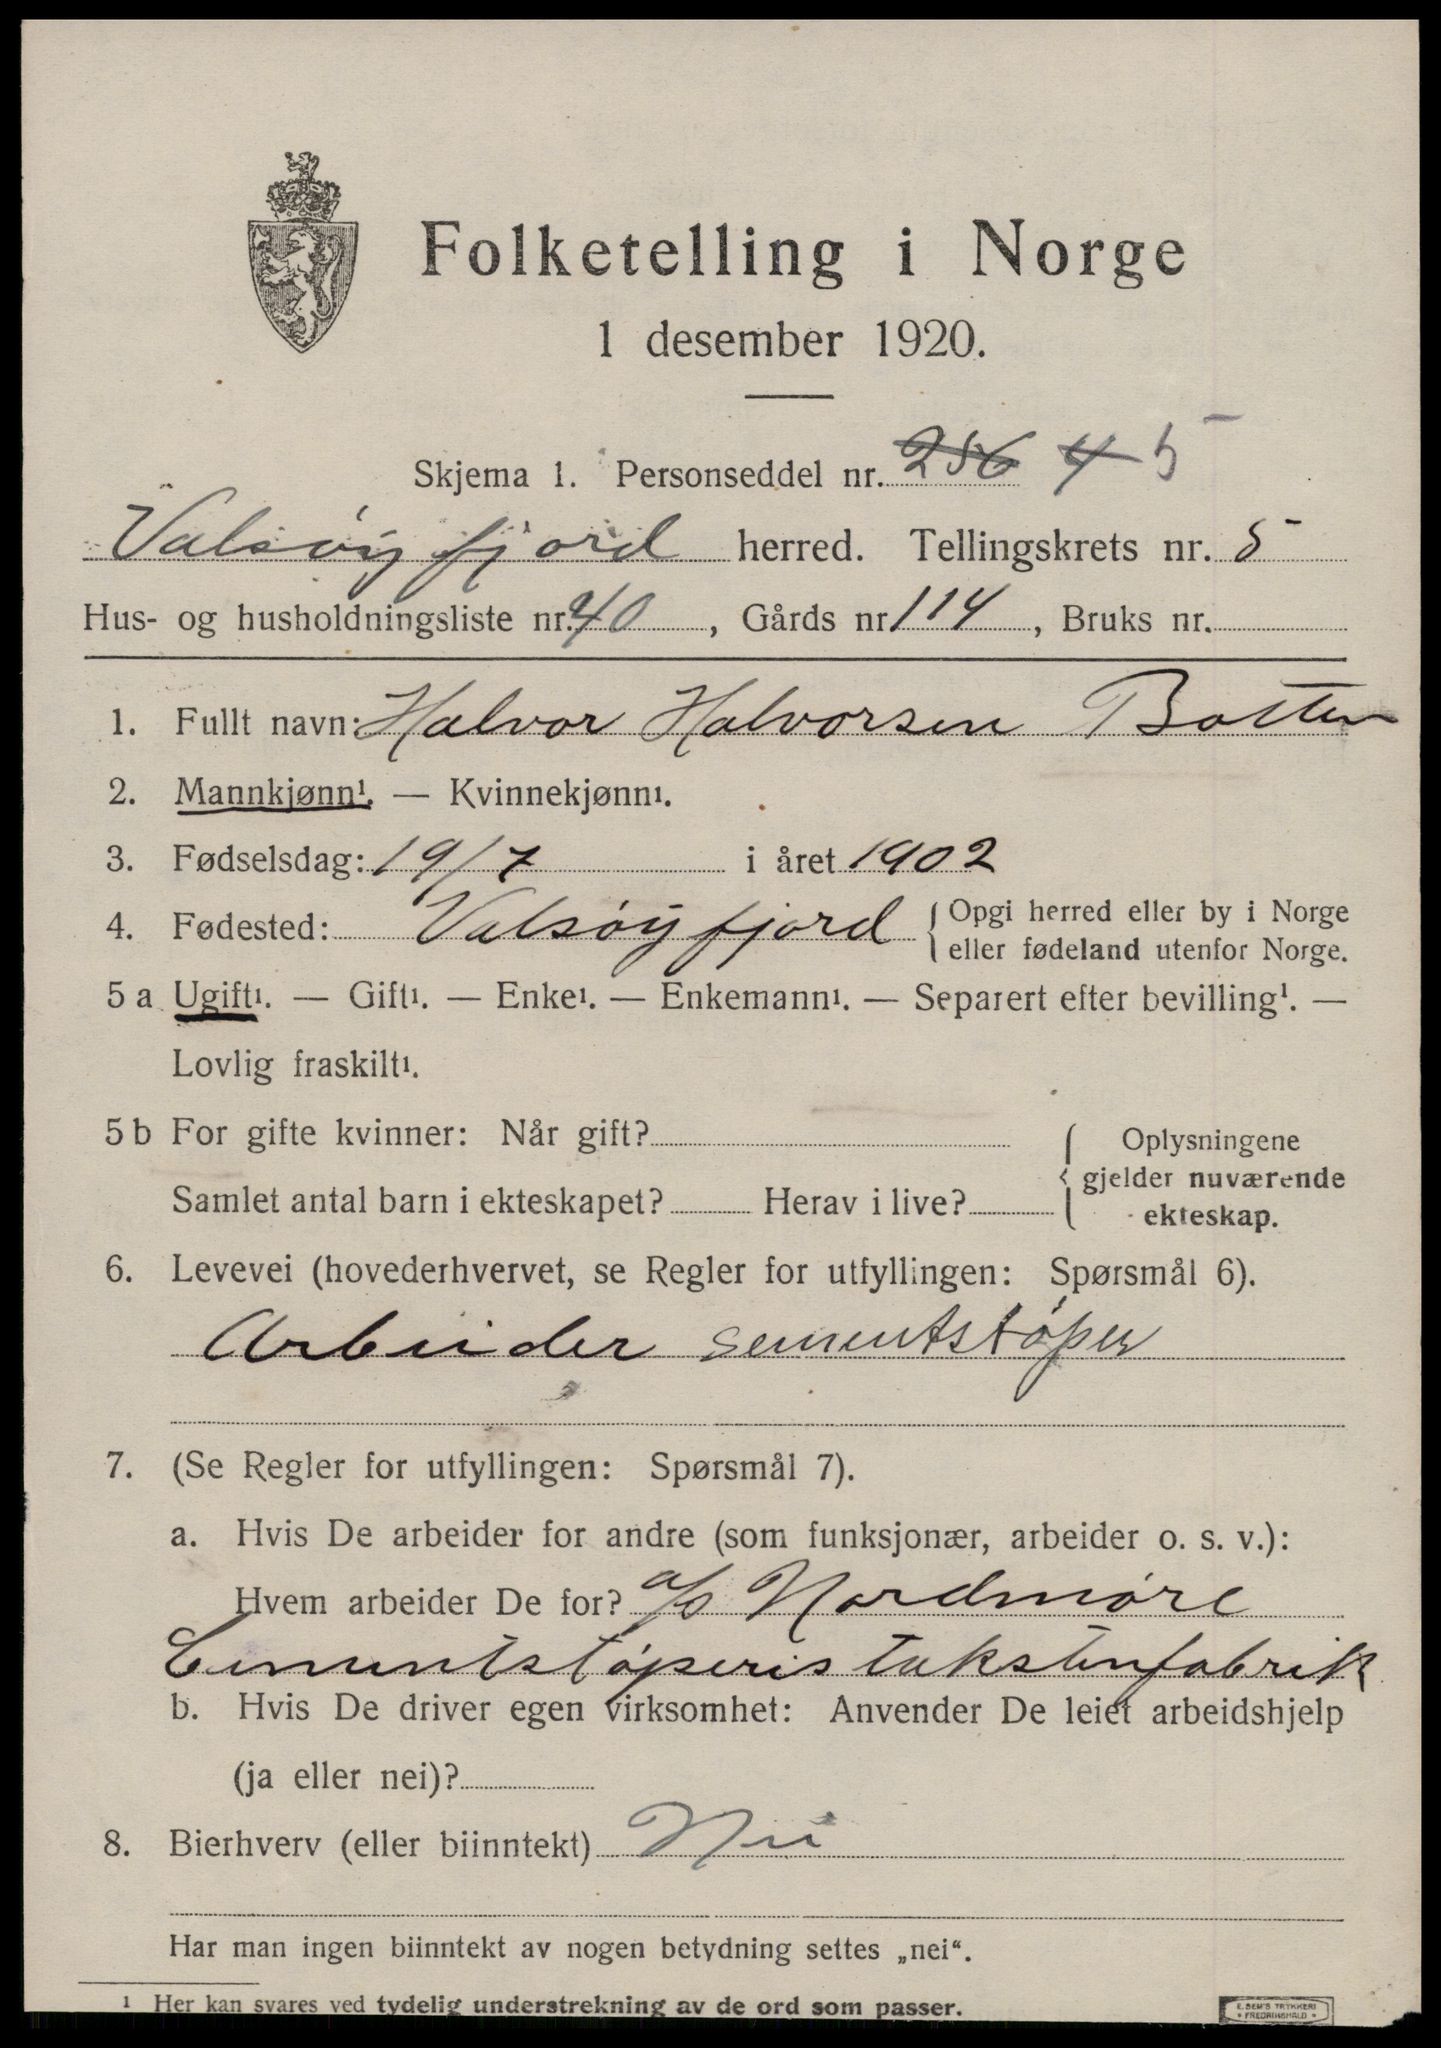 Folketelling i Norge
1 desember 1920.
Skjema 1. Personseddel nr. 256 4 5
Valsøyfjord herred. Tellingskrets nr. 5
Hus- og husholdningsliste nr. 40, Gårds nr 114, Bruks nr.
1. Fullt navn: Halvor Halvorsen Botten
2. Mannkjønn¹. — Kvinnekjønn¹.
3. Fødselsdag: 19/7 i året 1902
4. Fødested: Valsøyfjord { Opgi herred eller by i Norge
eller fødeland utenfor Norge.
5 a Ugift¹. — Gift¹. — Enke¹. — Enkemann¹. — Separert efter bevilling¹. —
Lovlig fraskilt¹.
5 b For gifte kvinner: Når gift? { Oplysningene
gjelder nuværende
Samlet antal barn i ekteskapet? Herav i live?
ekteskap.
6. Levevei (hovederhvervet, se Regler for utfyllingen: Spørsmål 6).
Arbeider sementstøper
7. (Se Regler for utfyllingen: Spørsmål 7).
a. Hvis De arbeider for andre (som funksjonær, arbeider o. s. v.):
Hvem arbeider De for? a/s Nordmøre
Cementstøperis takstenfabrik
b. Hvis De driver egen virksomhet: Anvender De leiet arbeidshjelp
(ja eller nei)?
8. Bierhverv (eller biinntekt) Nei
Har man ingen biinntekt av nogen betydning settes „nei“.
¹ Her kan svares ved tydelig understrekning av de ord som passer.
E. SEM'S TRYKKERI
• FREDRIKSHALD •